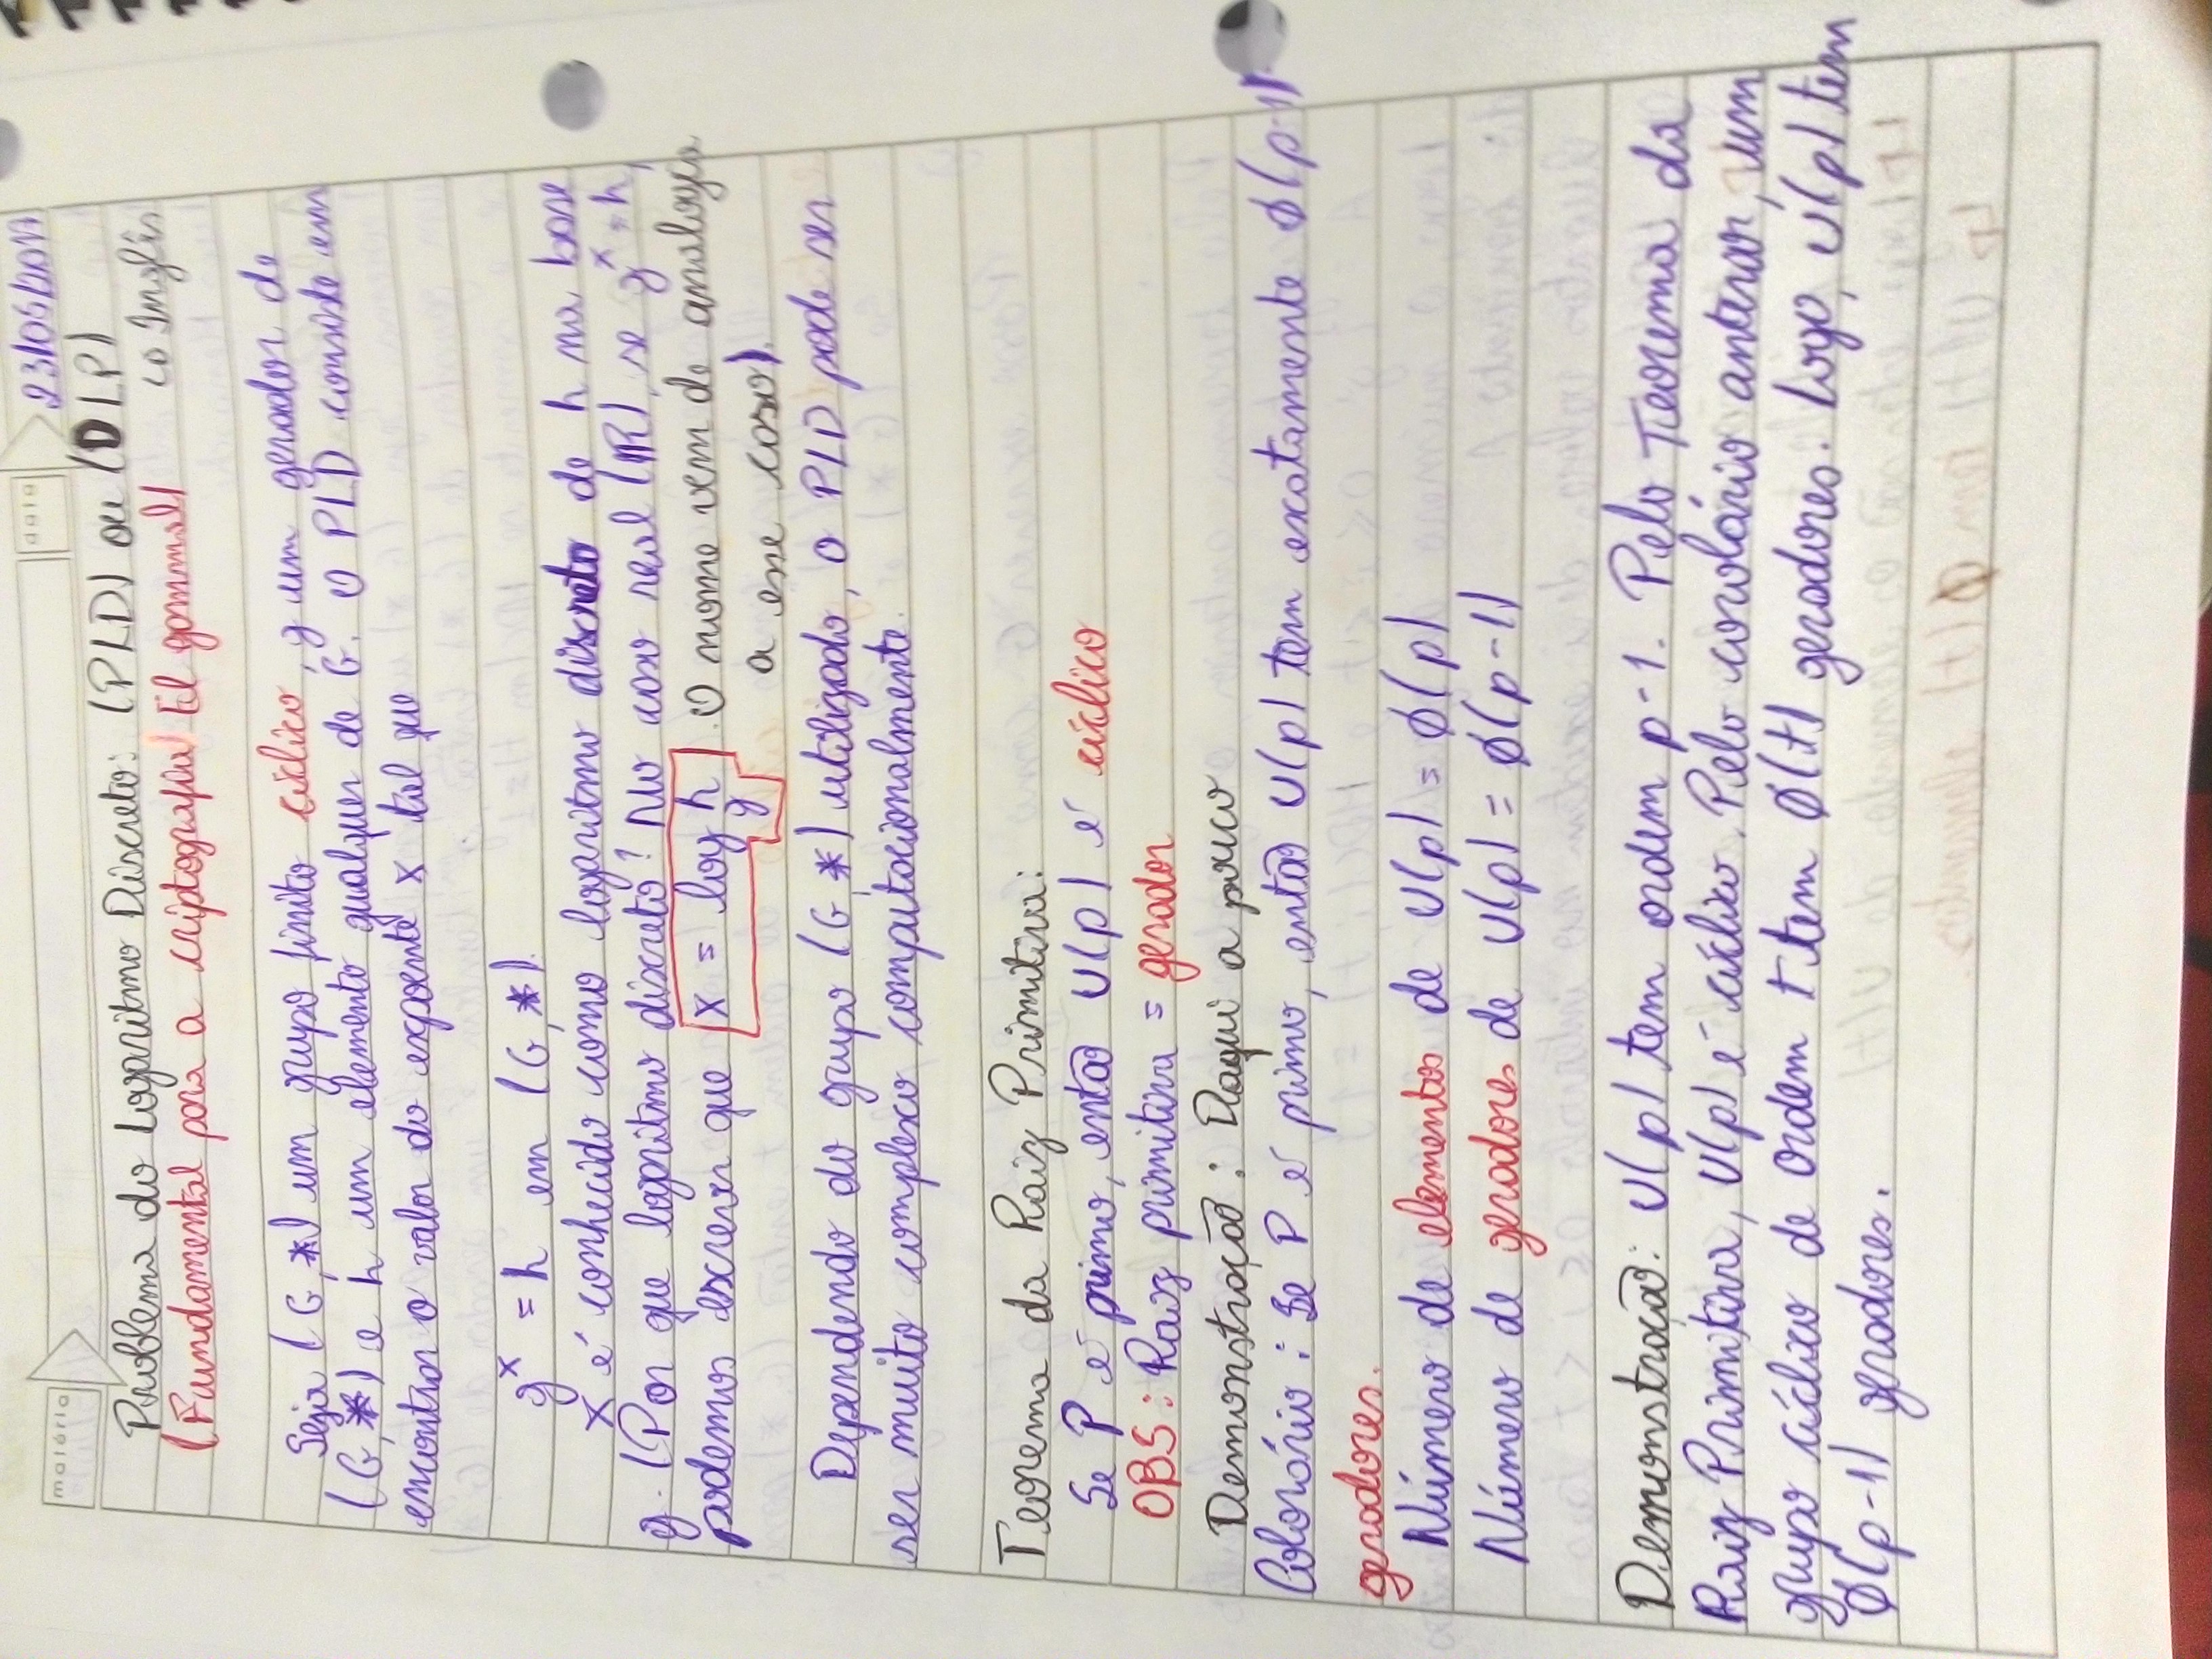 matéria data 23/05/2017
Problema do Logaritmo Discreto: (PLD) ou (DLP)
(Fundamental para a criptografia El gammal) ↳ Inglês
Seja (G,*) um grupo finito cíclico, g um gerador de
(G,*) e h um elemento qualquer de G. O PLD consiste em
encontrar o valor do expoente x tal que
g^x = h em (G,*).
x é conhecido como logaritmo discreto de h na base
g. (Por que logaritmo discreto? No caso real (ℝ), se g^x = h,
podemos escrever que x = log_g h. O nome vem de analogia
a esse caso).
Dependendo do grupo (G,*) utilizado, o PLD pode ser
ser muito complexo computacionalmente.
Teorema da Raiz Primitiva:
Se P é primo, então U(p) é cíclico
OBS: Raiz primitiva = gerador
Demonstração: Daqui a pouco
Colorário: Se P é primo, então U(p) tem exatamente ϕ(p-1)
geradores.
Número de elementos de U(p) = ϕ(p)
Número de geradores de U(p) = ϕ(p-1)
Demonstração: U(p) tem ordem p-1. Pelo Teorema da
Raiz Primitiva, U(p) é cíclico. Pelo corolário anterior, um
grupo cíclico de ordem t tem ϕ(t) geradores. Logo, U(p) tem
ϕ(p-1) geradores.